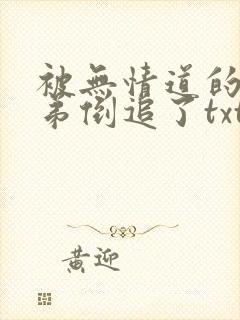 被無情道的
弟倒追了txt
黃迎